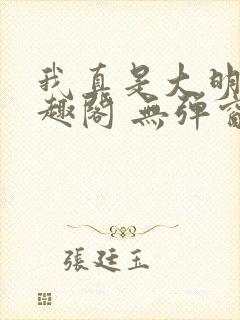 我真是大明
趣閣 無彈窗
張廷玉